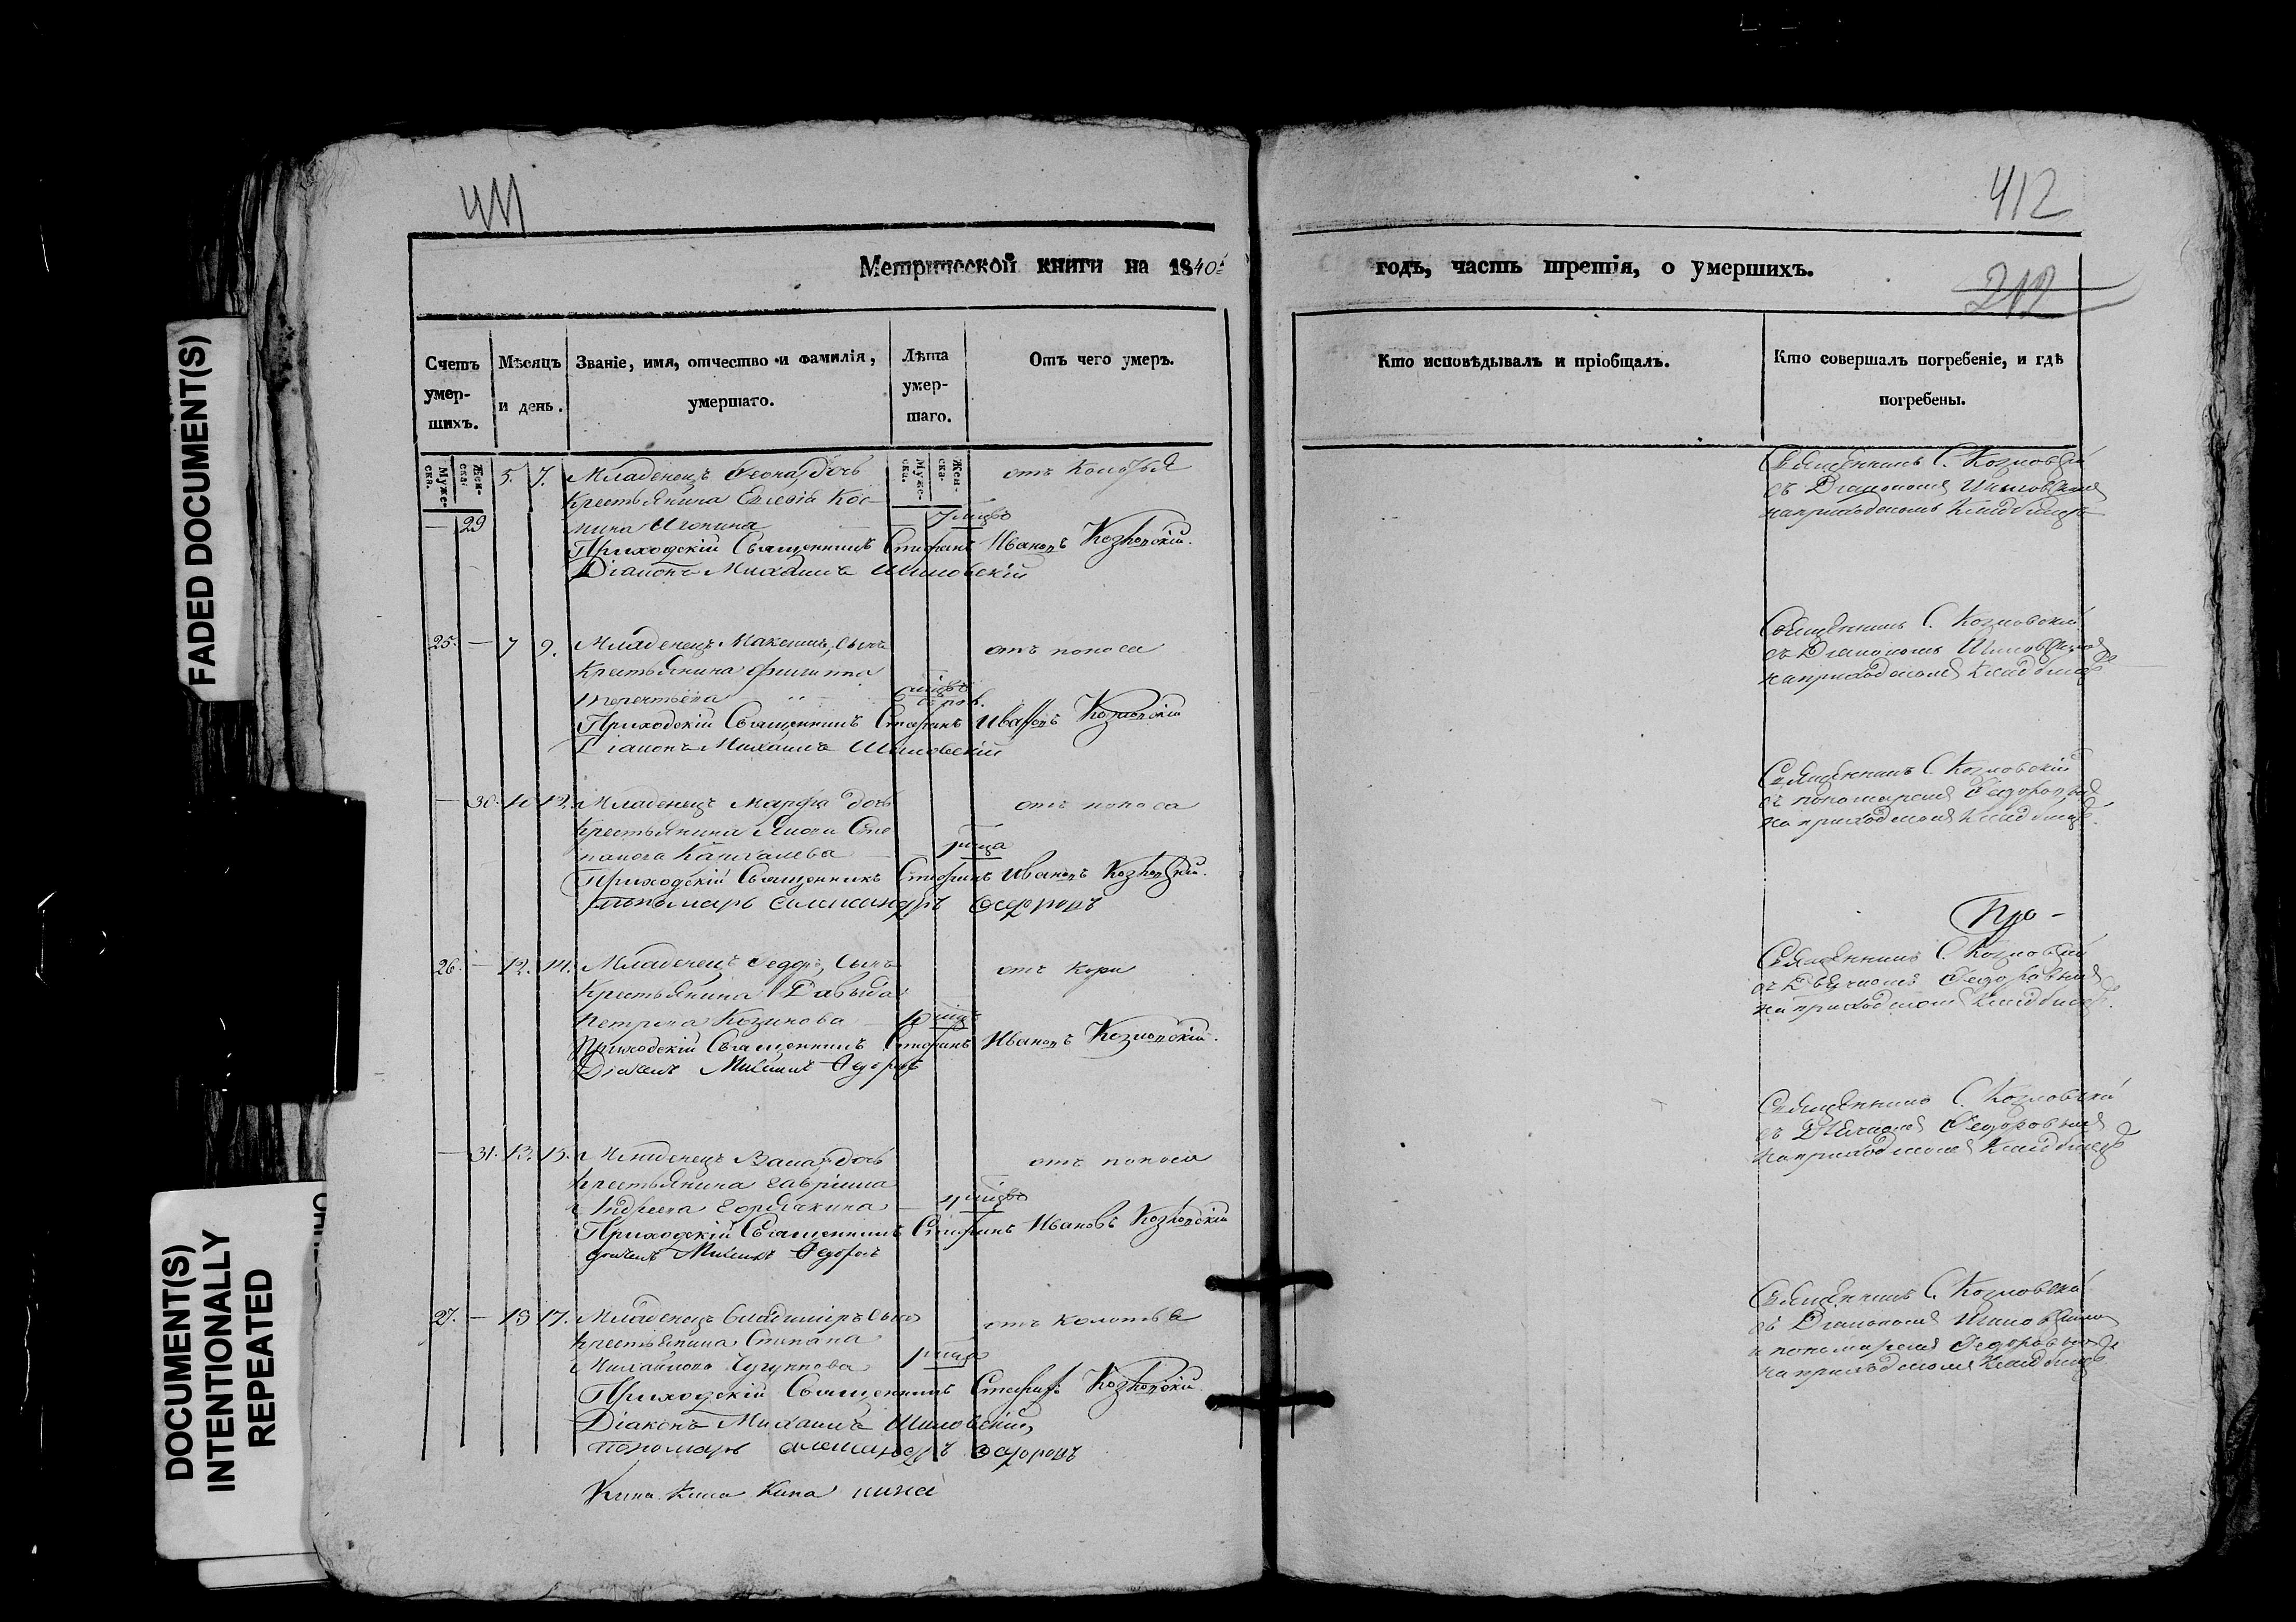 FADED DOCUMENT(S)
DOCUMENT(S)
INTENTIONALLY
REPEATED
411
412
212
Метрической книги на 1840й
годъ, часть третія, о умершихъ.
Счетъ умер-шихъ.
Мѣсяцъ и день.
Званіе, имя, отчество и фамилія, умершаго.
Лѣта умер-шаго.
Отъ чего умеръ.
Кто исповѣдывалъ и пріобщалъ.
Кто совершалъ погребеніе, и гдѣ
погребены.
Муже-ска.
Жен-ска.
Муже-ска.
Жен-ска.
5. 7. Младенецъ дочь
Крестьянина Кос-
— 29
Приходскій Священникъ Стефанъ Ивановъ Козловскій.
Діаконъ Михаилъ Шиловскій
Священникъ С. Козловскій
съ Діакономъ Шиловскимъ
на приходскомъ кладбищѣ
25. — 7 9. Младенецъ Максимъ, сынъ отъ поноса
Крестьянина Филиппа
Приходскій Священникъ Стефанъ Ивановъ Козловскій
Діаконъ Михаилъ Шиловскій
Священникъ С. Козловскій
съ Діакономъ Шиловскимъ
на приходскомъ кладбищѣ
— 30. 10 12. Младенецъ Марфа дочь отъ поноса
Крестьянина Сте
панова
Приходскій Священникъ Стефанъ Ивановъ Козловскій.
Пономарь Александръ Федоровъ
Священникъ С. Козловскій
съ пономаремъ Федоровымъ
на приходскомъ кладбищѣ.
Про-
26. — 12. 14. Младенецъ Федоръ, сынъ отъ кори
Крестьянина Давыда
Петрова Козинова
Приходскій Священникъ Стефанъ Ивановъ Козловскій.
Михаилъ Федоровъ
Священникъ С. Козловскій
съ Дьячкомъ Федоровымъ
на приходскомъ кладбищѣ.
— 31. 13. 15. Младенецъ дочь отъ поноса
Крестьянина Гавріила
Андреева Горячкина 4 мѣсц
Приходскій Священникъ Стефанъ Ивановъ Козловскій
Михаилъ Федоровъ
Священникъ С. Козловскій
съ Дьячкомъ Федоровымъ
на приходскомъ кладбищѣ
27. — 15 17. Младенецъ Владиміръ сынъ отъ колотья
Крестьянина Степана
Михайлова Чугунова
Приходскій Священникъ Стефанъ Козловскій.
Діаконъ Михаилъ Шиловскій,
Пономарь Александръ Федоровъ
Священникъ С. Козловскій
съ Діакономъ Шиловскимъ
и пономаремъ Федоровымъ
на приходскомъ кладбищѣ